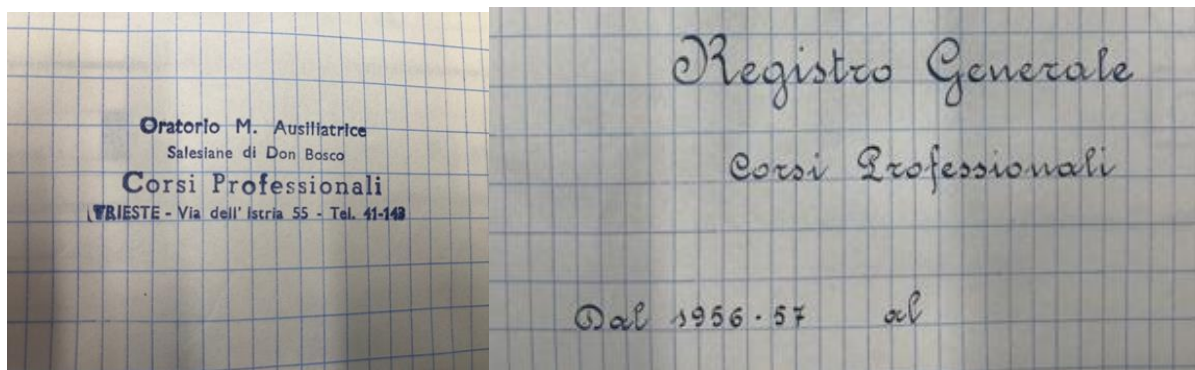 Oratorio M. Ausiliatrice
Salesiane di Don Bosco
Corsi Professionali
TRIESTE - Via dell' Istria 55 - Tel. 41-143
Registro Generale
Corsi Professionali
Dal 1956-57 al